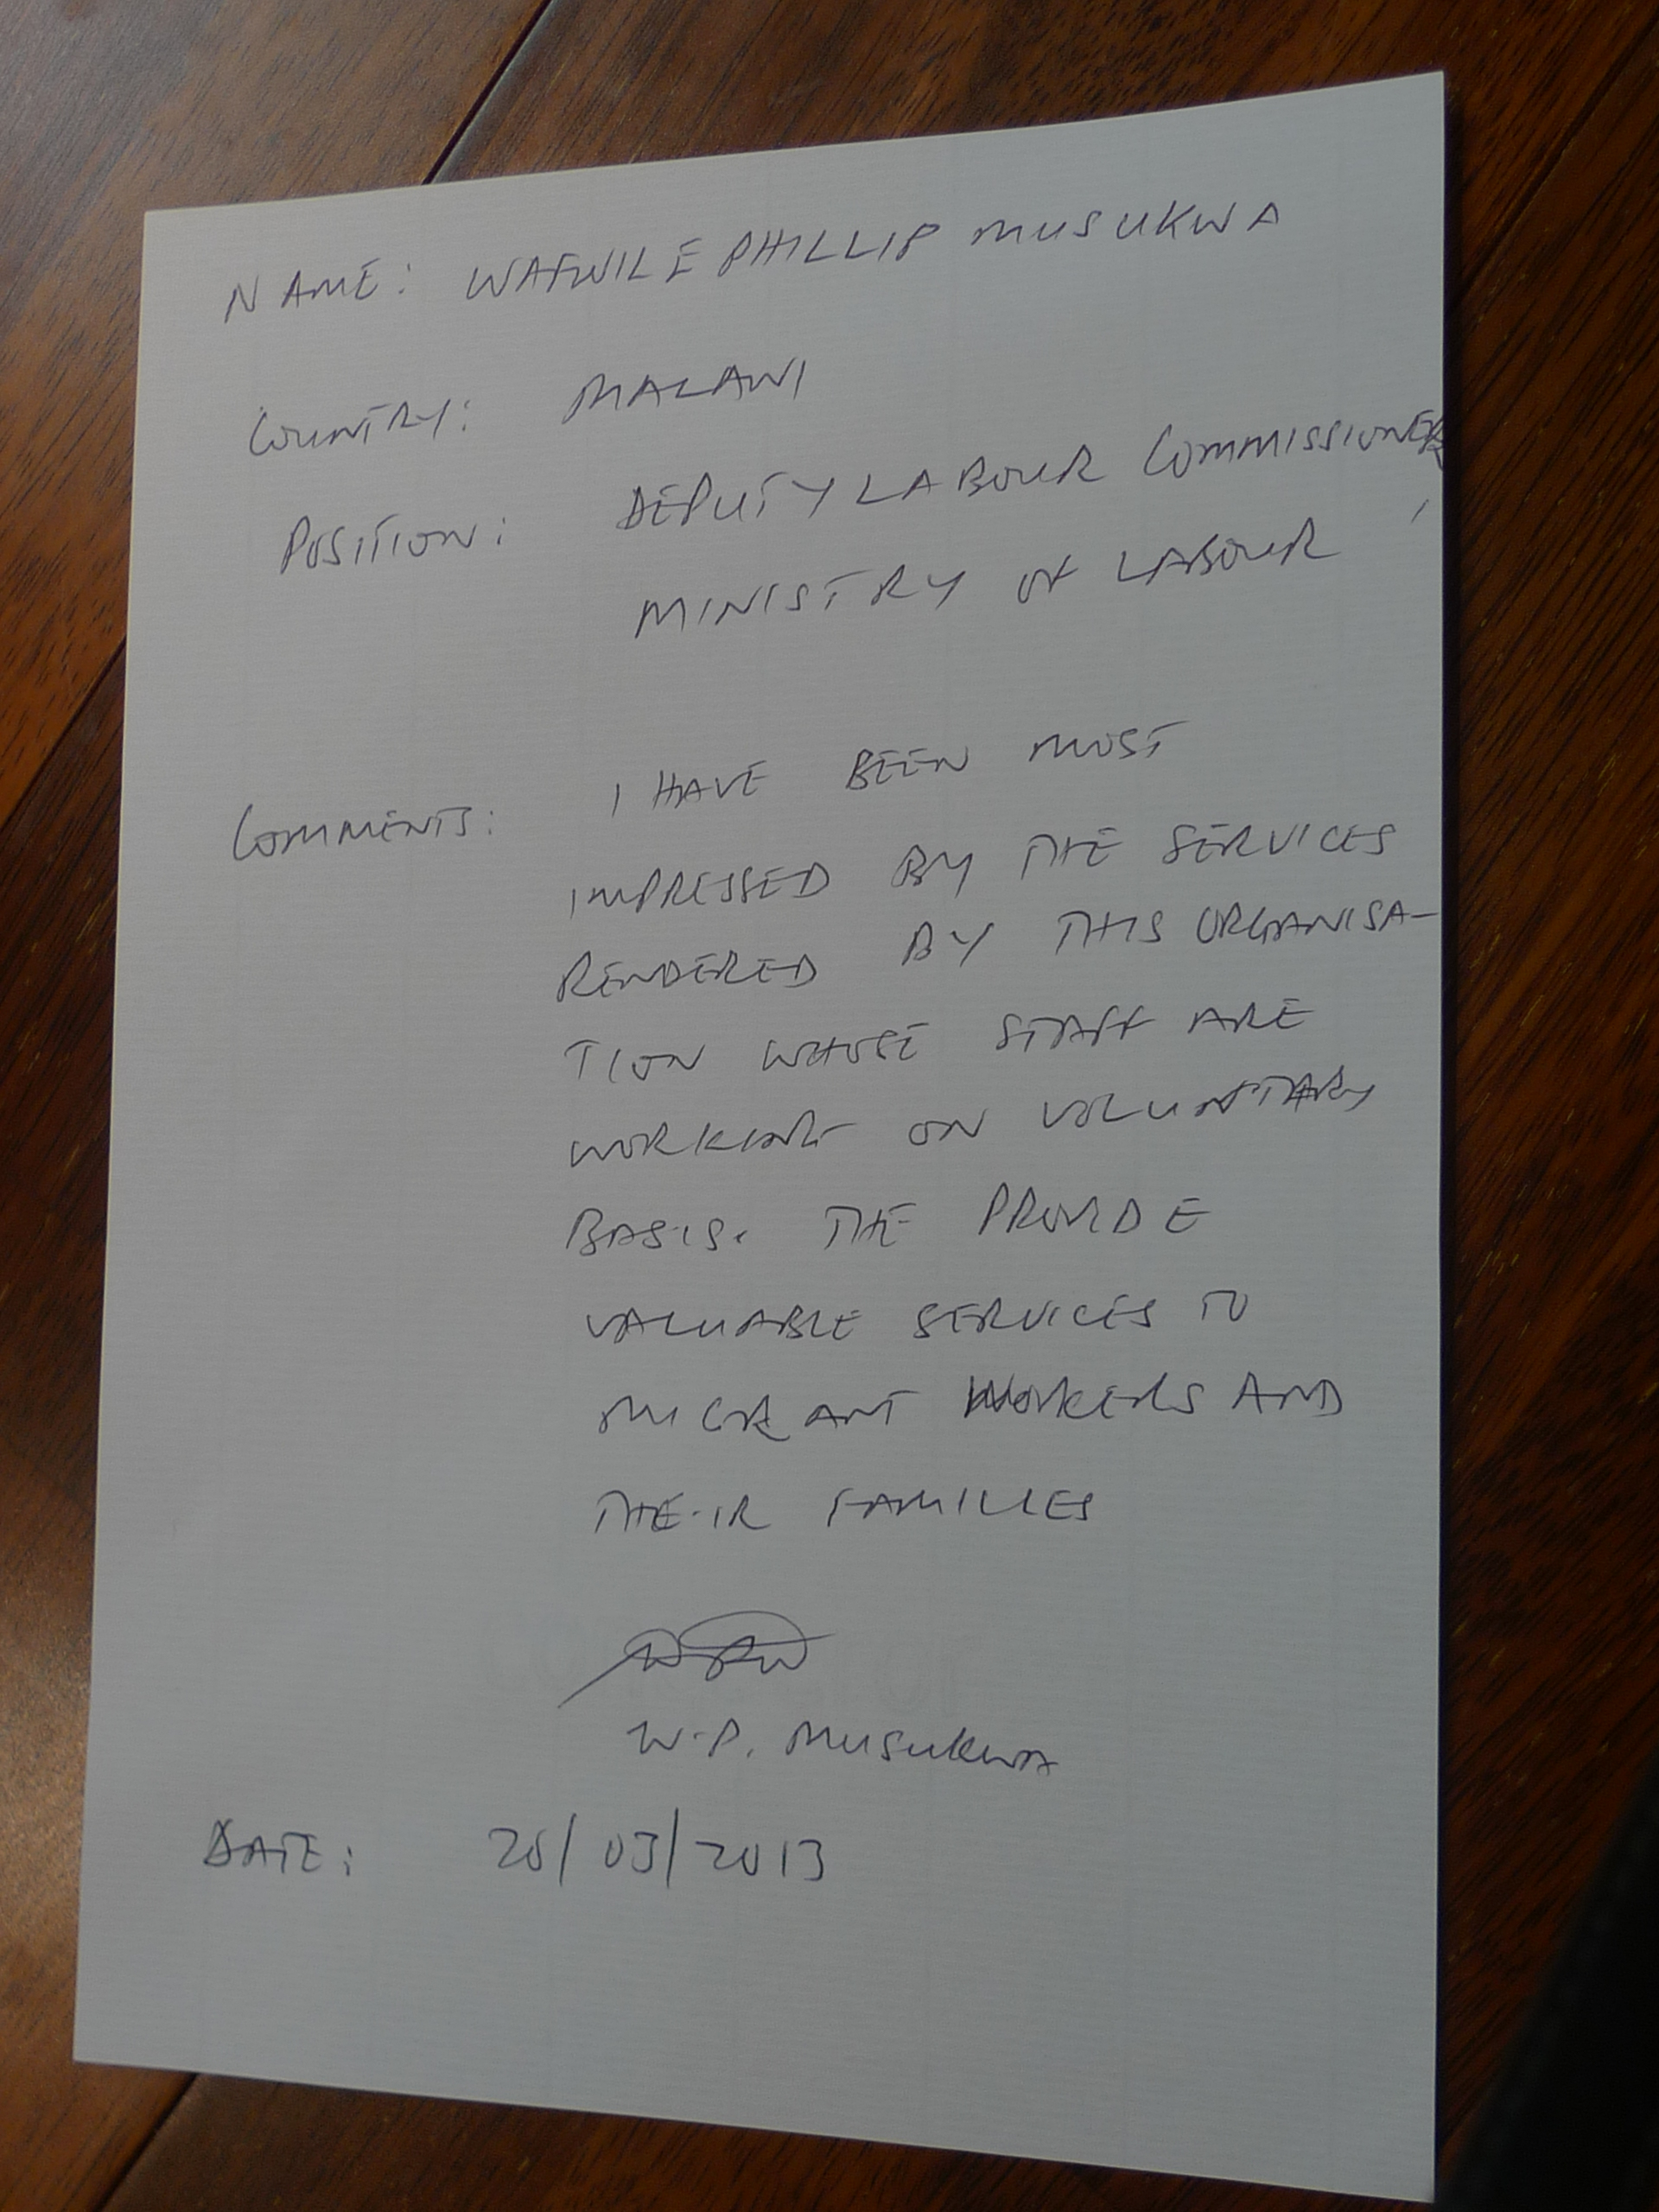 NAME: WAFWILE PHILLIP MUSUKWA
COUNTRY: MALAWI
POSITION: DEPUTY LABOUR COMMISSIONER,
MINISTRY OF LABOUR
COMMENTS: I HAVE BEEN MOST
IMPRESSED BY THE SERVICES
RENDERED BY THIS ORGANISA-
TION WHOSE STAFF ARE
WORKING ON VOLUNTARY
BASIS. THE PROVIDE
VALUABLE SERVICES TO
MIGRANT WORKERS AND
THEIR FAMILIES
W.P. MUSUKWA
DATE: